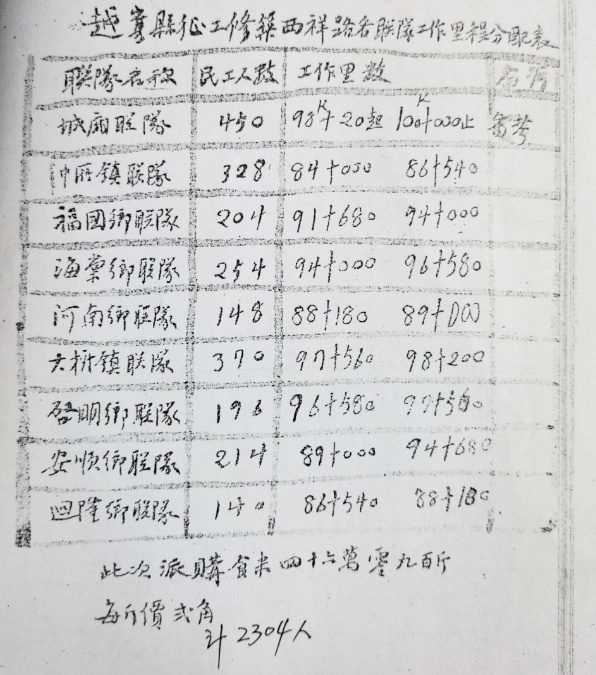 越嶲縣征工修築西祥路各聯隊工作里程分配表
聯隊名称 民工人數 工作里數
城廂联隊 450 98K+20起 100K+000止 备考
中所鎮联隊 328 84+000 86+540
福國鄉联隊 204 91+680 94+000
海棠鄉联隊 254 94+000 96+580
河南鄉联隊 148 88+180 89+000
大樹鎮联隊 370 97+560 98+200
啓明鄉联隊 196 96+580 97+560
安順鄉联隊 214 89+000 94+680
迴隆鄉联隊 140 86+540 88+180
此次派購食米四十六萬零九百斤
每斤價弍角
計2304人